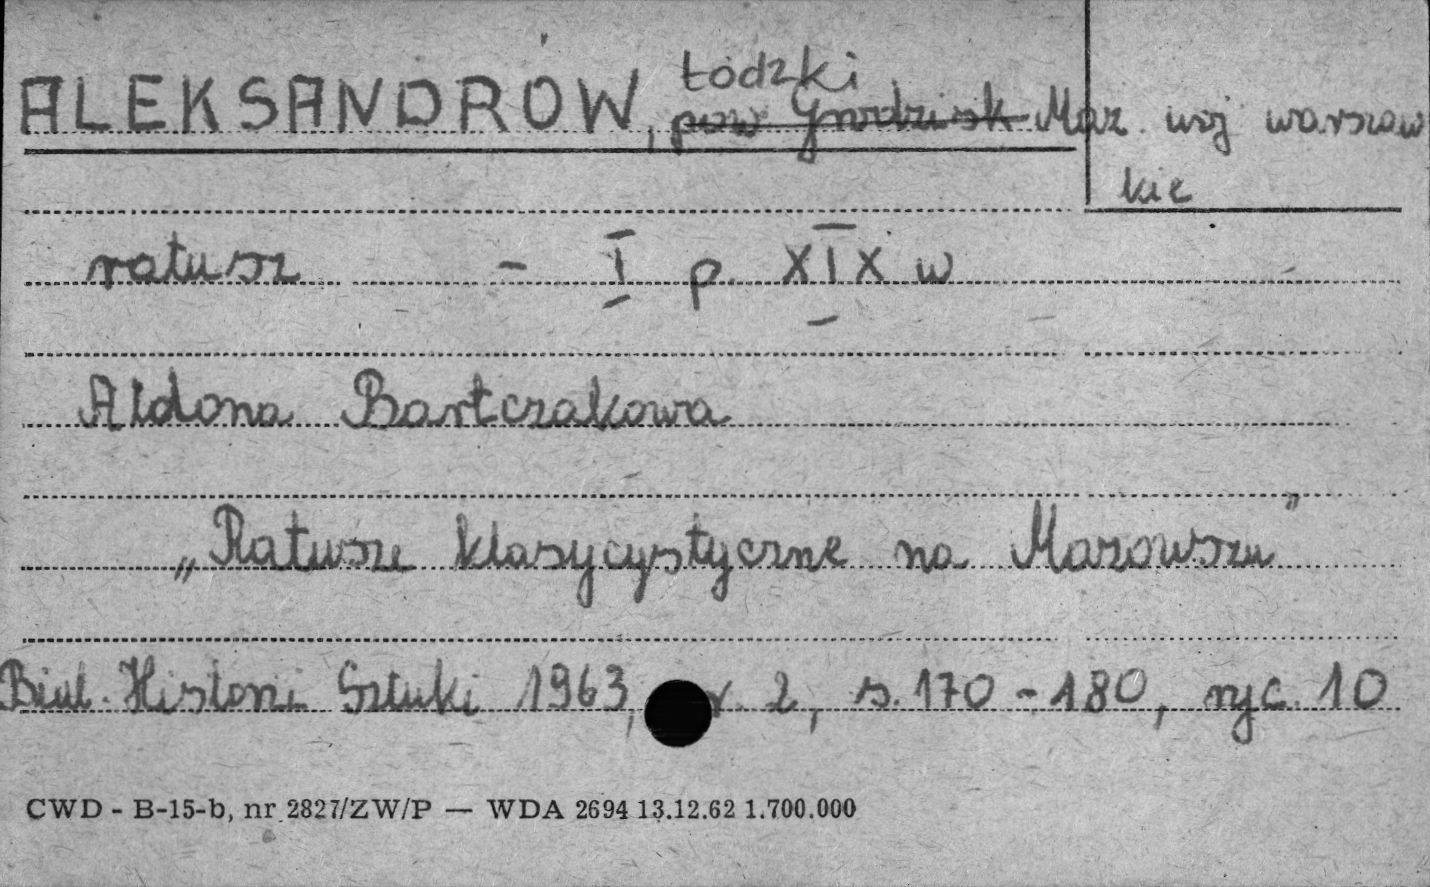 ALEKSANDRÓW, Łódzki pow Grodzisk Maz. woj warszaw
kie
ratusz - I p. XIX w
Aldona Bartczakowa
„Ratusze klasycystyczne na Mazowszu"
Biul. Historii Sztuki 1963, r. 2, s. 170 - 180, ryc. 10
CWD - B-15-b, nr 2827/ZW/P — WDA 2694 13.12.62 1.700.000